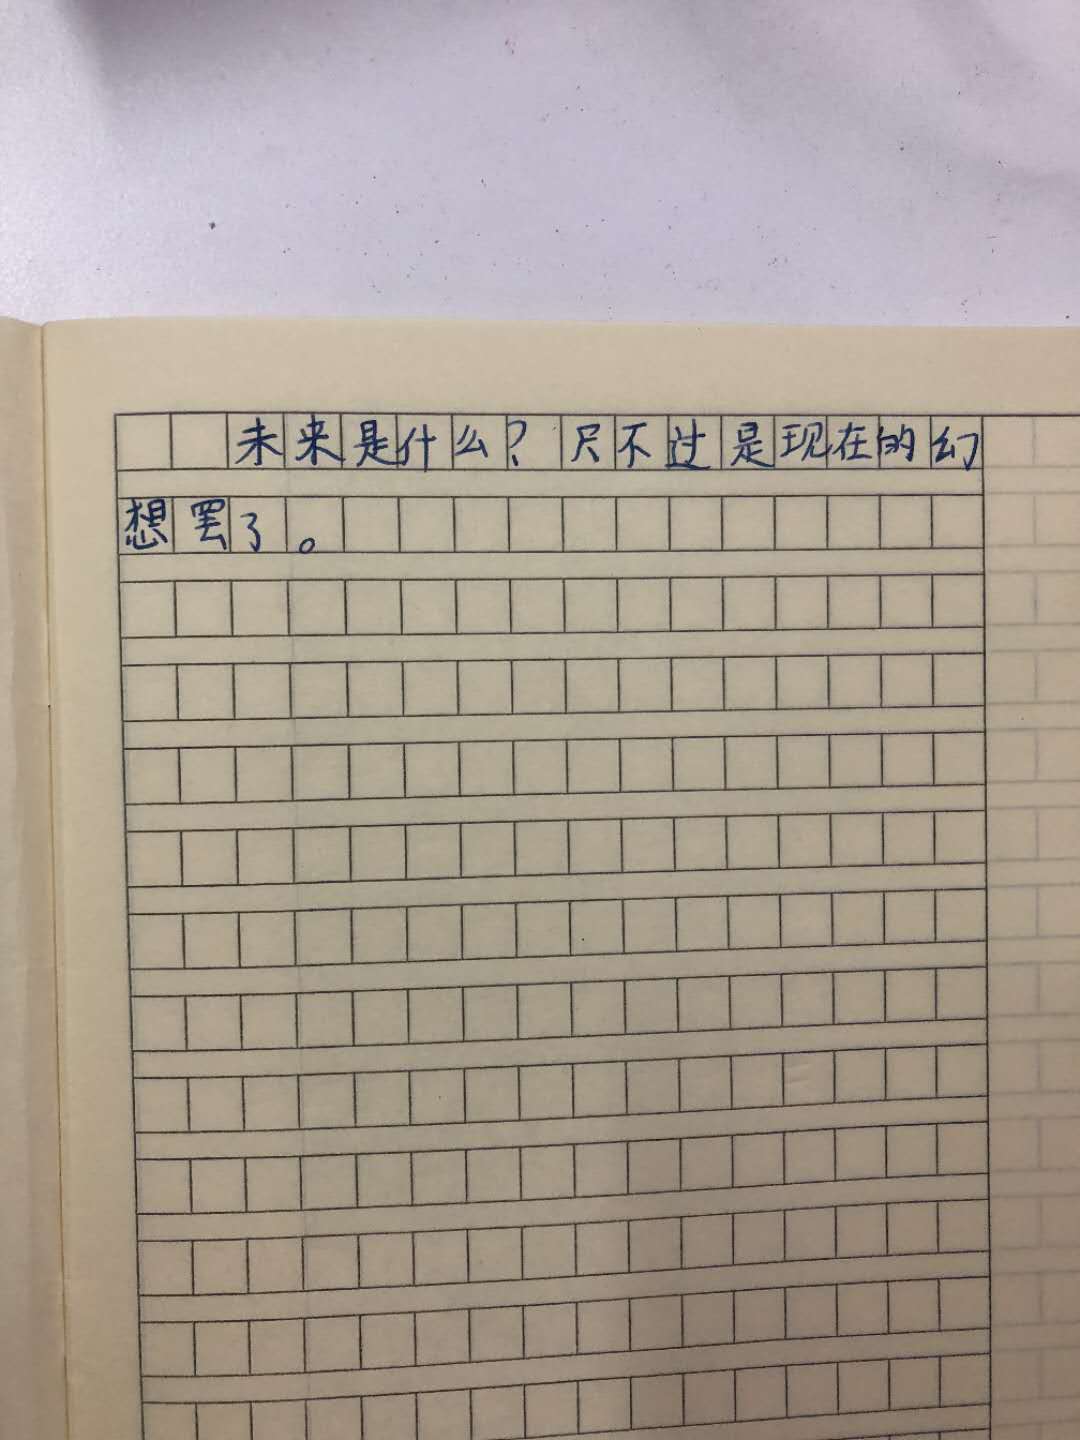 未来是什么？尺不过是现在的幻
想罢了。